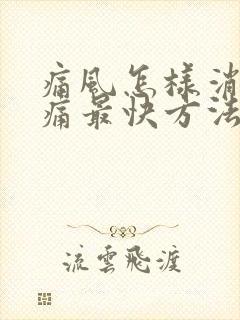 痛風怎樣消
痛最快方法
流雲飛渡